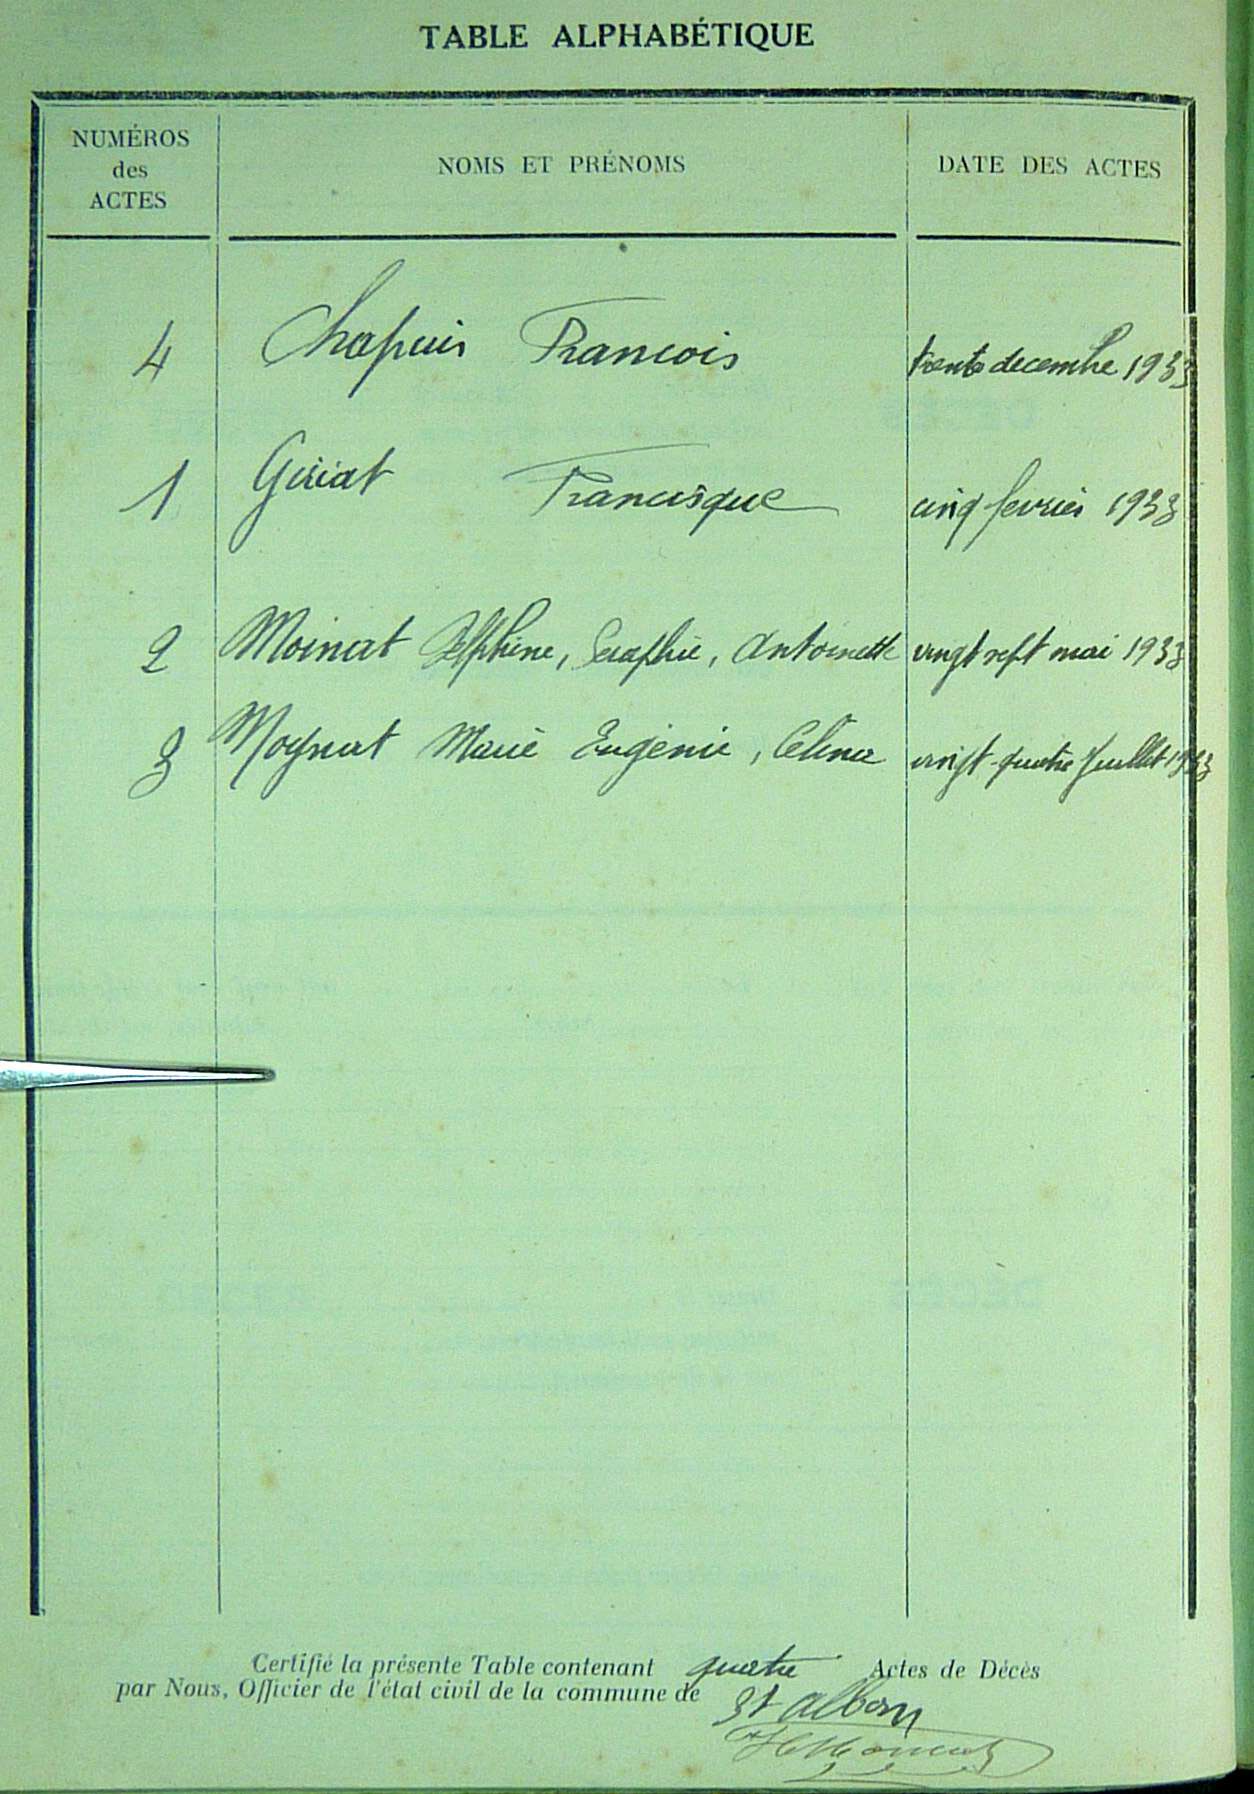 TABLE ALPHABÉTIQUE
NUMÉROS des ACTES NOMS ET PRÉNOMS DATE DES ACTES
4 Chapuis Francois trente decembre 1933
1 Giriat Francisque cinq fevrier 1933
2 Moinat Delphine, Seraphie, Antoinette vingt sept mai 1933
3 Moynat Marie Eugénie, Celina vingt-quatre Juillet 1933
Certifié la présente Table contenant quatre Actes de Décès
par Nous, Officier de l'état civil de la commune de
St Alban